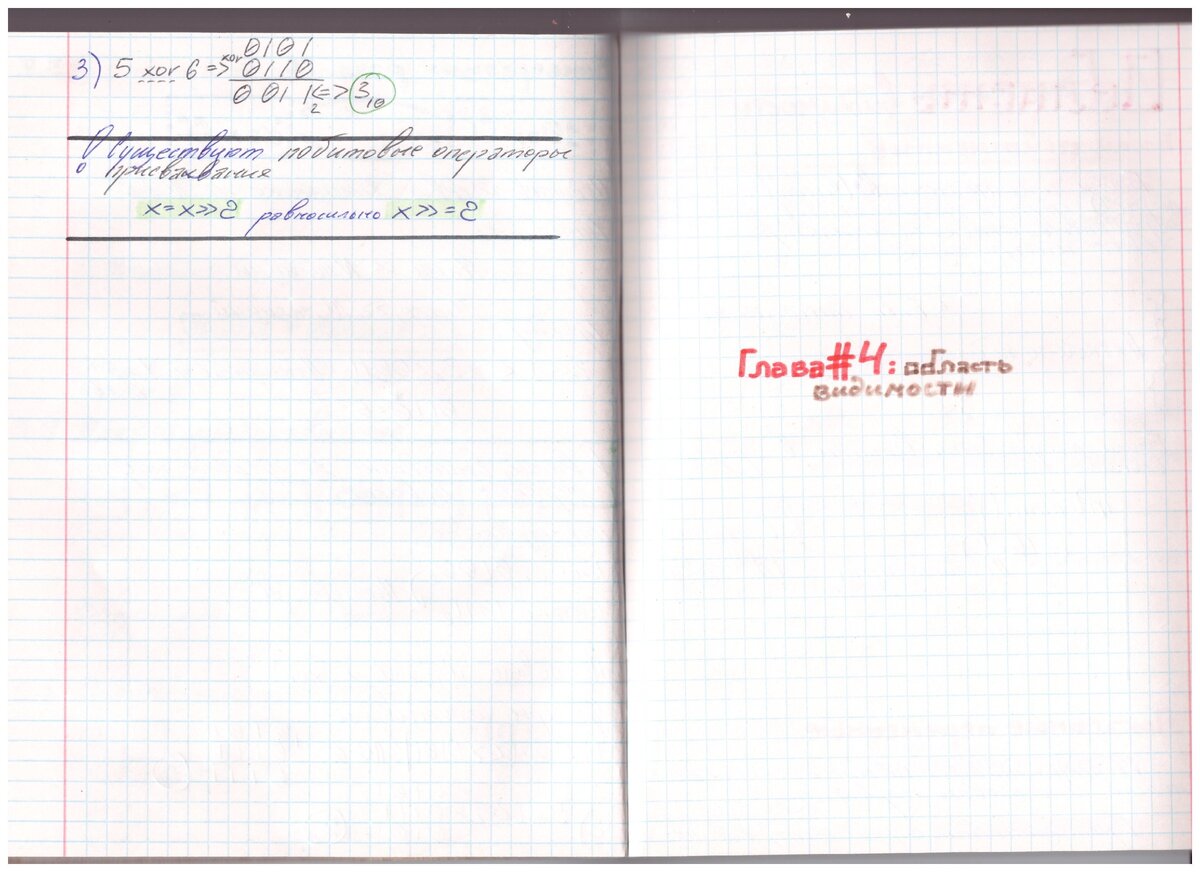 0101
3) 5 xor 6 => xor 0110
0011₂ <=> 3₁₀
! Существуют побитовые операторы
присваивания
x=x>>2 равносильно x>>=2
Глава#4: область
видимости